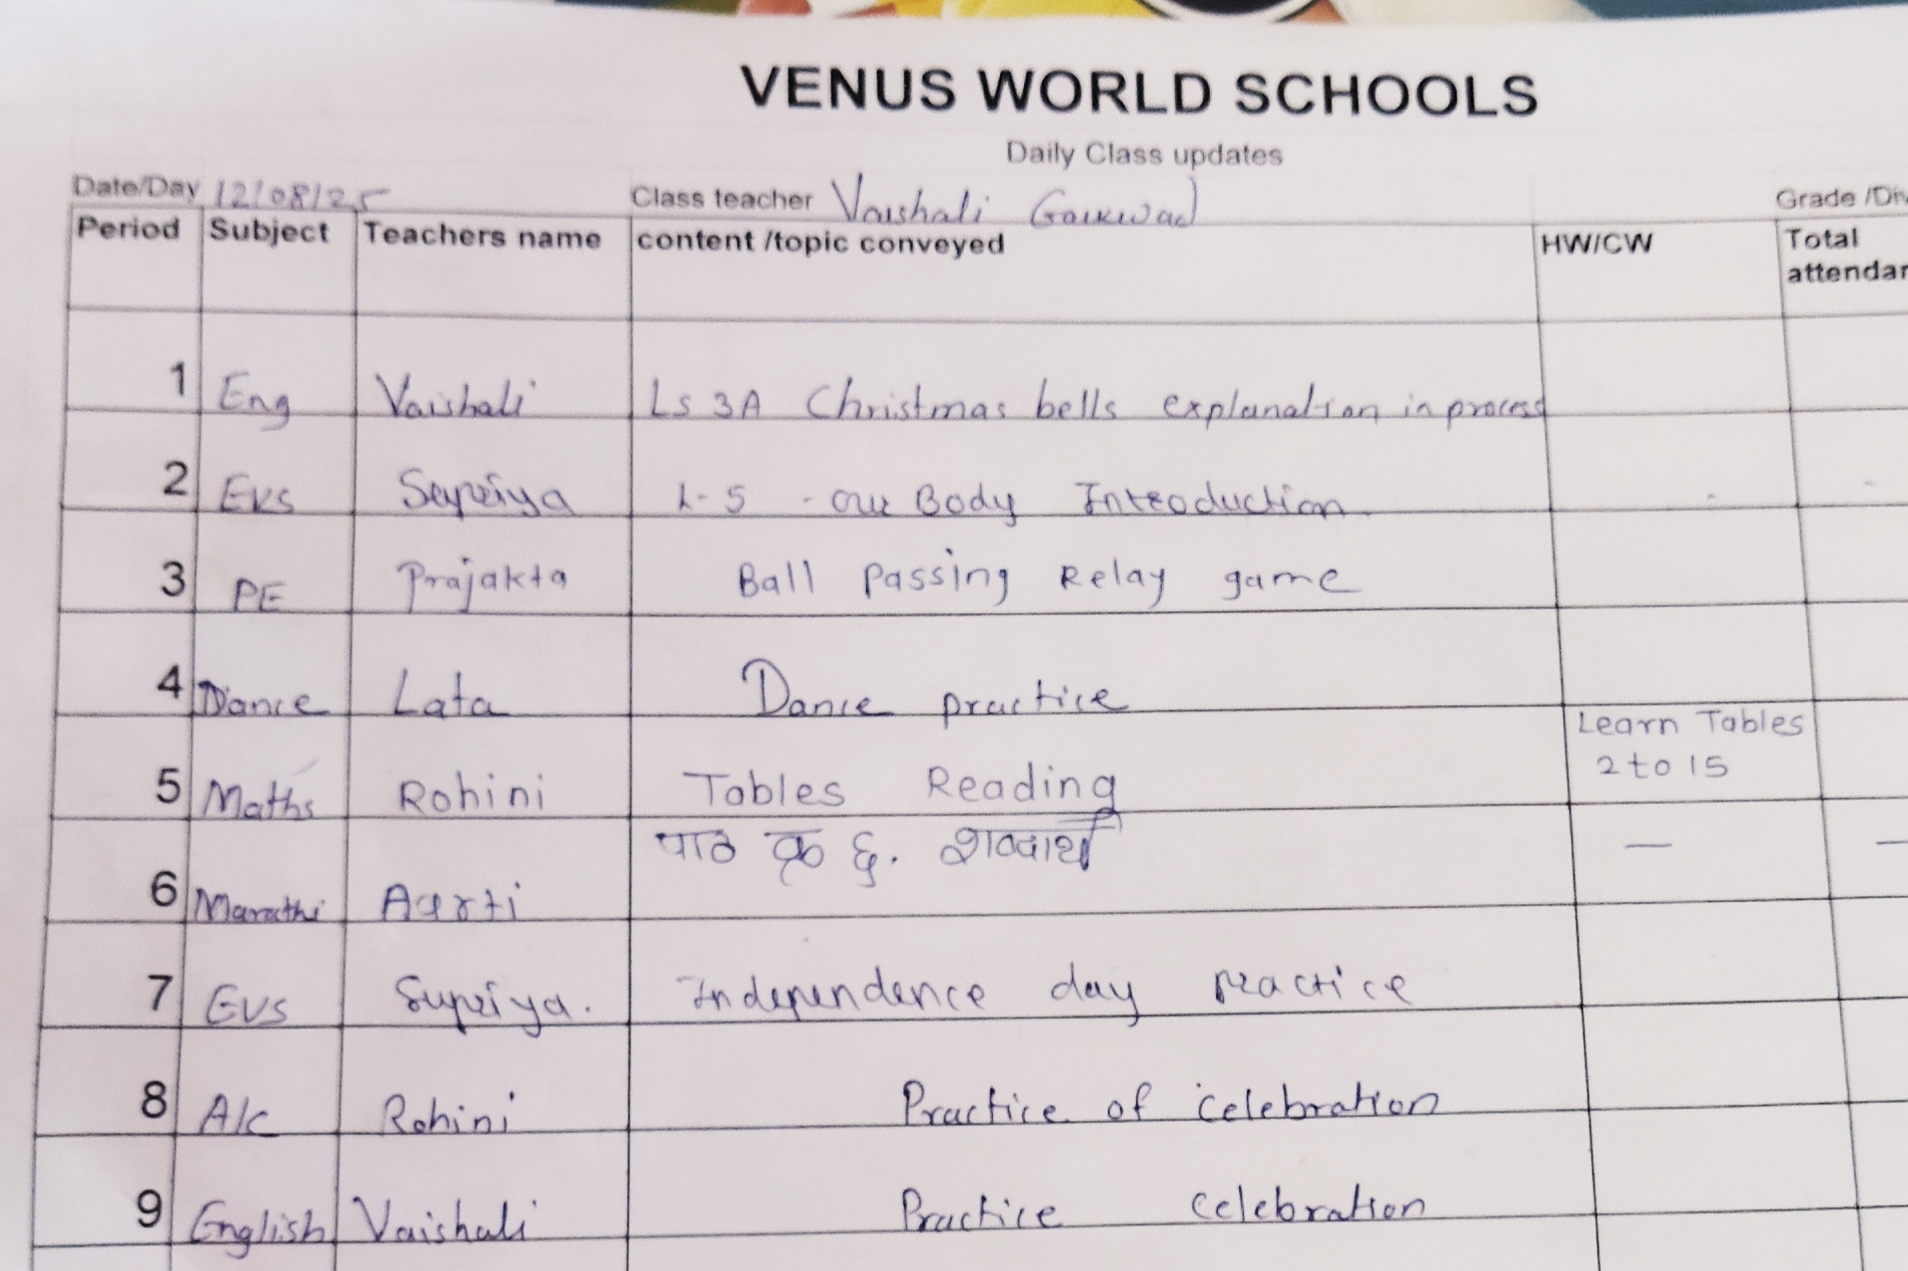 VENUS WORLD SCHOOLS
Daily Class updates
Date/Day 12/08/25 Class teacher Vaishali Gaikwad Grade /Div
Period Subject Teachers name content /topic conveyed HW/CW Total
attendan
1 Eng Vaishali Ls 3A Christmas bells explanation in process
2 EVS Supriya L-5 - our Body Introduction
3 PE Prajakta Ball Passing Relay game
4 Dance Lata Dance practice
5 Maths Rohini Tables Reading Learn Tables
2 to 15
6 Marathi Aarti पाठ क्र ६. शब्दार्थ — —
7 EVS Supriya. Independence day practice
8 A/c Rohini Practice of celebration
9 English Vaishali Practice celebration